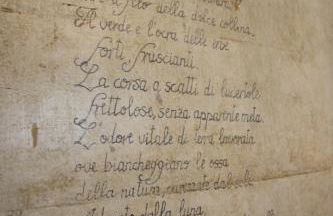 filo della dolce collina.
Il verde e l'ocra delle erve
forti fruscianti
La corsa a scatti di lucertole
frettolose, senza apparente meta.
L'odore vitale di terra lavorata
ove biancheggiano le ossa
della natura, dal sole
dalla luna